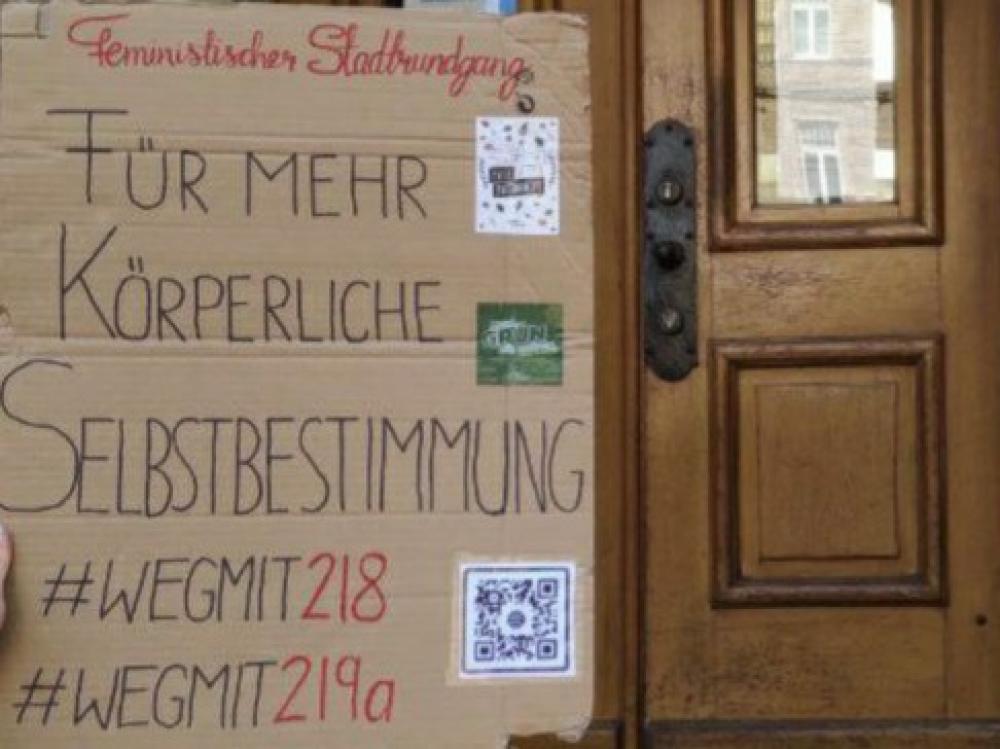 Feministischer Stadtrundgang
FÜR MEHR
KÖRPERLICHE
SELBSTBESTIMMUNG
#WEGMIT218
#WEGMIT219a
GRÜN